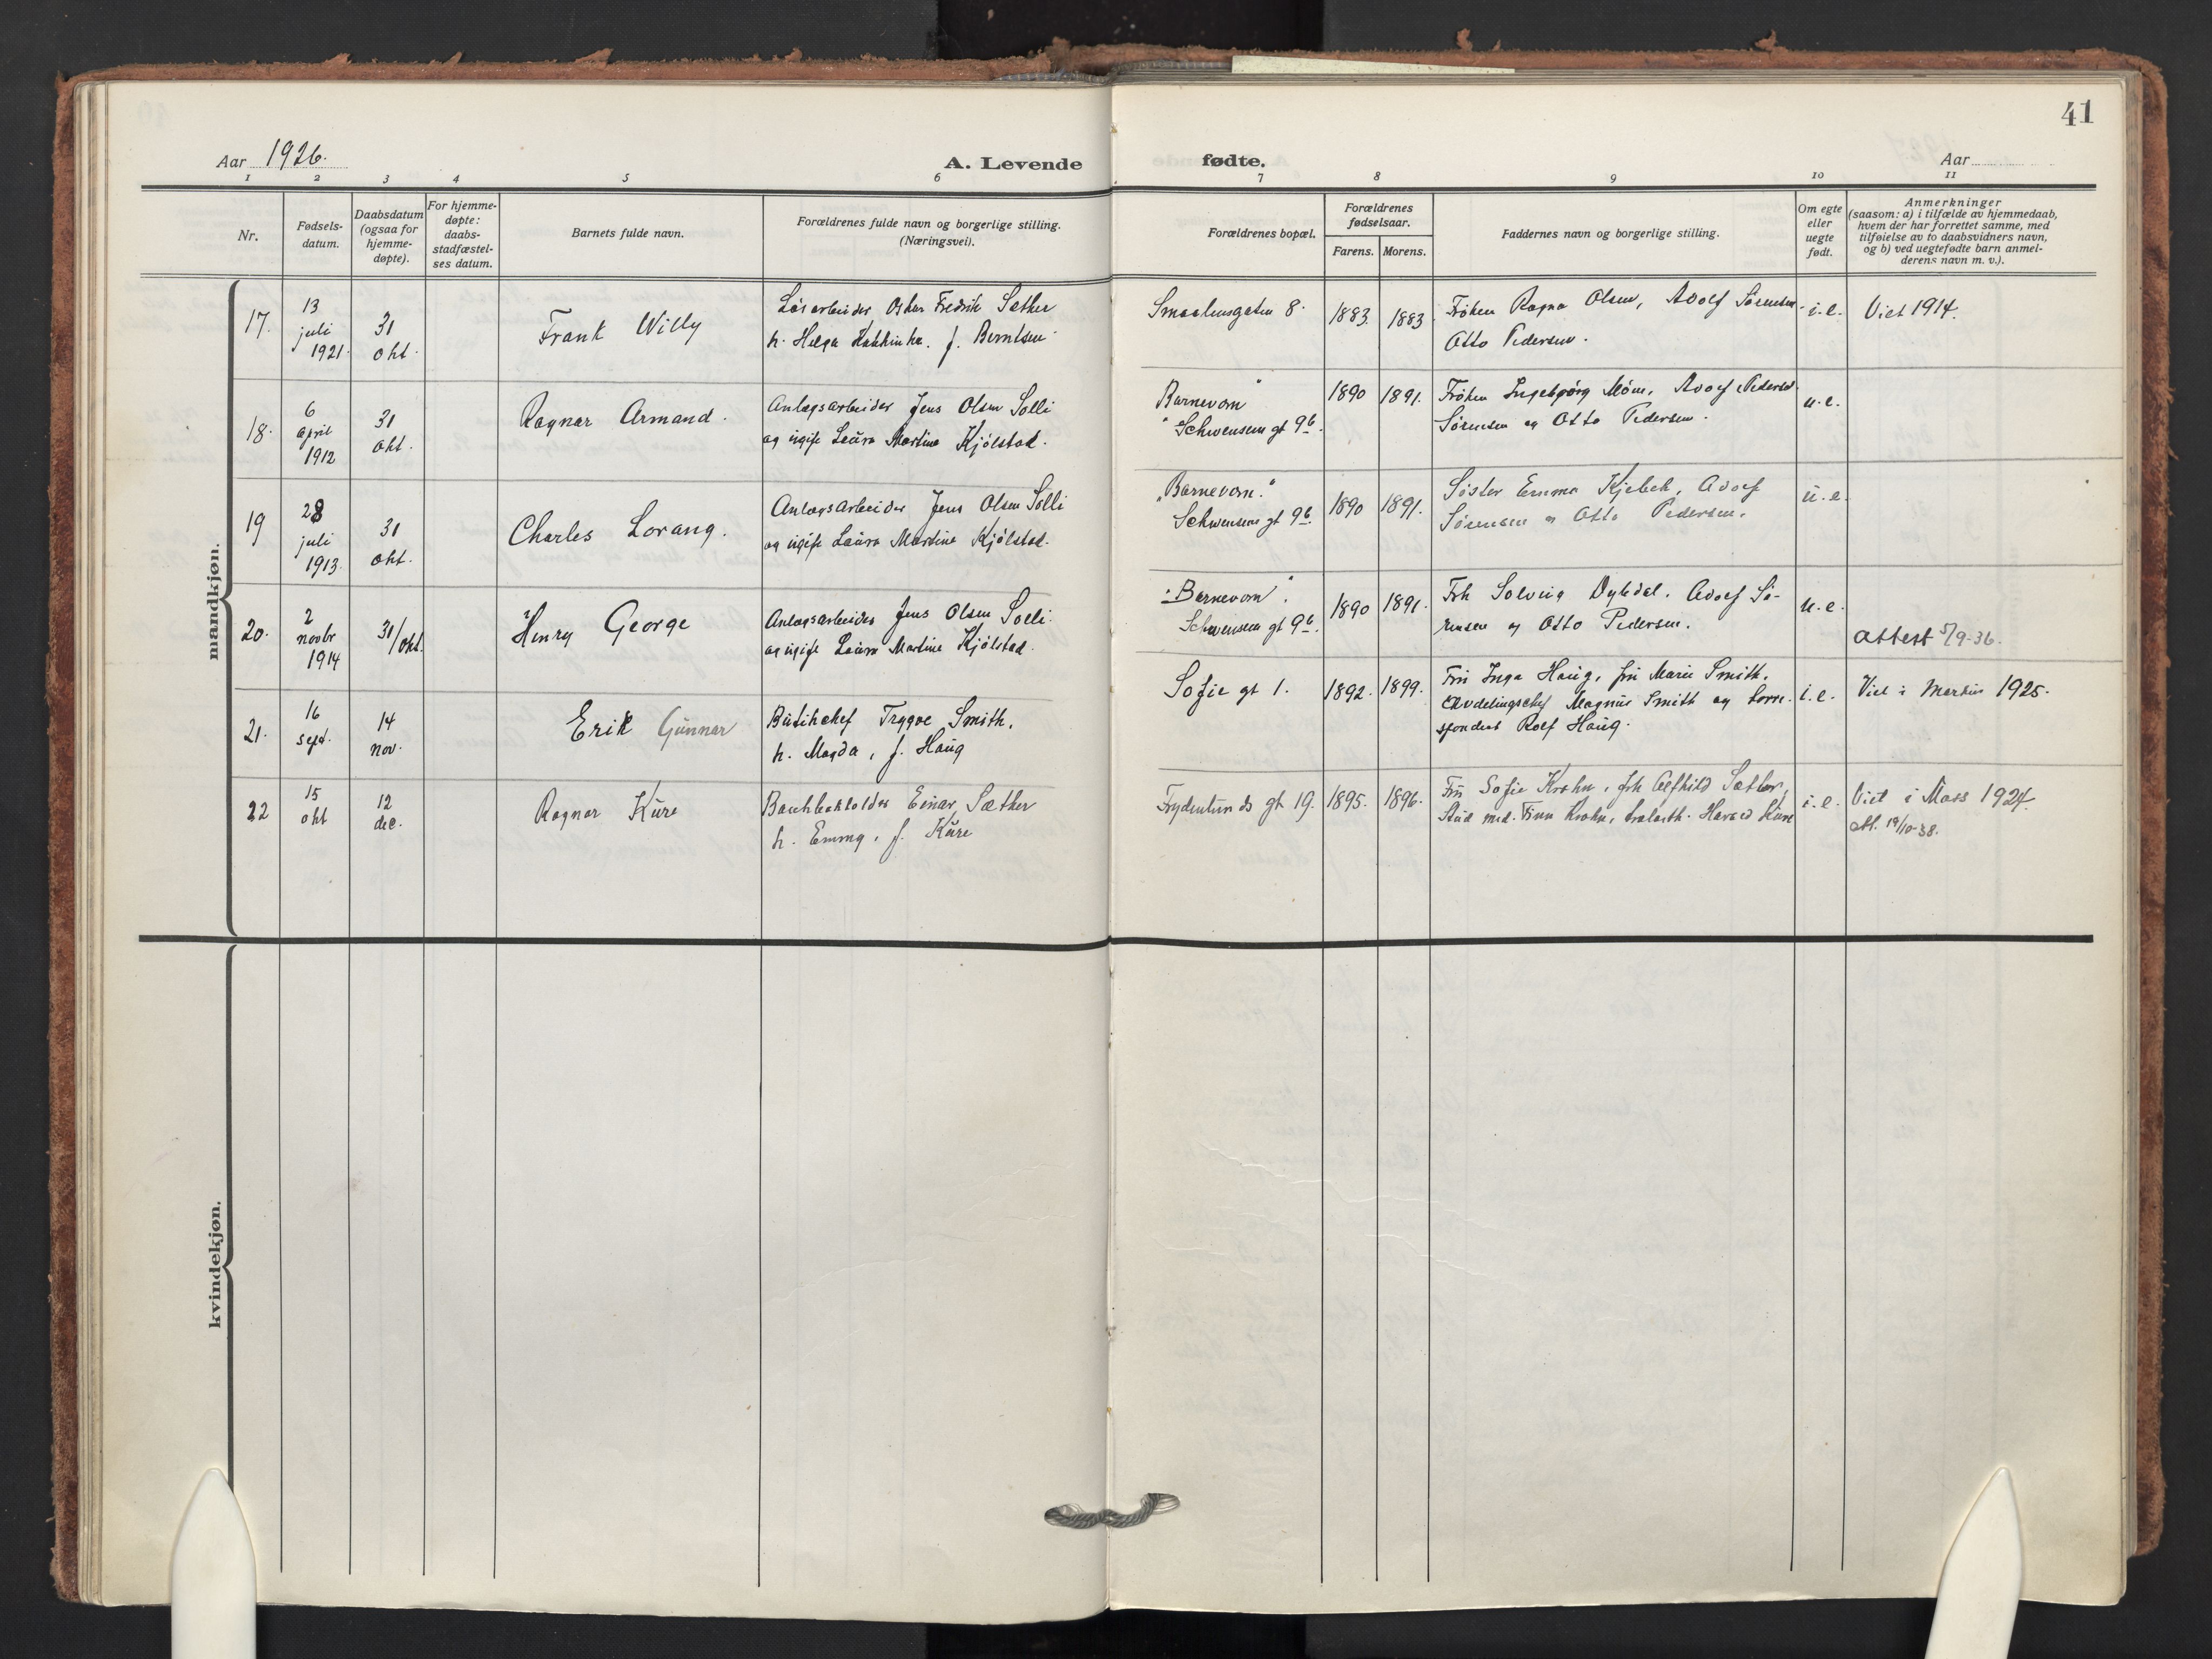 41
Aar 1926.
A. Levende
fødte.
Aar
1 2 3 4 5 6 7 8 9 10 11
Nr.
Fødsels-
datum.
Daabsdatum
(ogsaa for
hjemme-
døpte).
For hjemme-
døpte:
daabs-
stadfæstel-
ses datum.
Barnets fulde navn.
Forældrenes fulde navn og borgerlige stilling.
(Næringsvei).
Forældrenes bopæl.
Forældrenes
fødselsaar.
Farens. Morens.
Faddernes navn og borgerlige stilling.
Om egte
eller
uegte
født.
Anmerkninger
(saasom: a) i tilfælde av hjemmedaab,
hvem der har forrettet samme, med
tilføielse av to daabsvidners navn,
og b) ved uegtefødte barn anmel-
derens navn m. v.).
mandkjøn.
17.
13
juli
1921.
31
okt.
Frank Willy
Løsarbeider Oskar Fredrik Sæther
h. Helga f. Berntsen
Smaalensgaten 8.
1883. 1883
Frøken Ragna Olsen, Adolf Sørensen
Otto Pedersen.
i.e.
Viet 1914.
18.
6
april
1912
31
okt.
Ragnar Armand.
Anlægsarbeider Jens Olsen Solli
og ugift Laura Martine Kjølstad.
"Barnevern"
Schwensens gt 9b.
1890 1891.
Frøken Ingebjørg Mone, Adolf Pedersen
Sørensen og Otto Pedersen.
u.e.
19
28
juli
1913.
31
okt.
Charles Lorang.
Anlægsarbeider Jens Olsen Solli
og ugift Laura Martine Kjølstad.
"Barnevern."
Schwensens gt 9b.
1890 1891.
Søster Emma Kjebek, Adolf
Sørensen og Otto Pedersen.
u.e.
20.
2
novbr
1914
31/okt.
Henry George
Anlægsarbeider Jens Olsen Solli.
og ugift Laura Martine Kjølstad.
"Barnevern".
Schwensens gt 9b.
1890 1891.
Frk Solveig Dybdal. Adolf Sø-
rensen og Otto Pedersen.
u.e.
Attest 5/9-36.
21.
16
sept.
14
nov.
Erik Gunnar
Butikchef Trygve Smith.
h. Magda, f. Haug
Sofie gt 1.
1892. 1899.
Fru Inga Haug, fru Marie Smith.
Avdelingschef Magnus Smith og korre-
spondent Rolf Haug.
i.e.
Viet i Markus 1925.
22
15
okt
12
dec.
Ragnar Kure
Bankbokholder Einar Sæther
h. Emmy, f. Kure
Frydenlunds gt 19.
1895. 1896.
Fru Sofie Krohn, frk Alfhild Sæther,
Stud med. Finn Krohn, Harald Kure
i.e.
Viet i Moss 1924.
att. 19/10-38.
kvindekjøn.